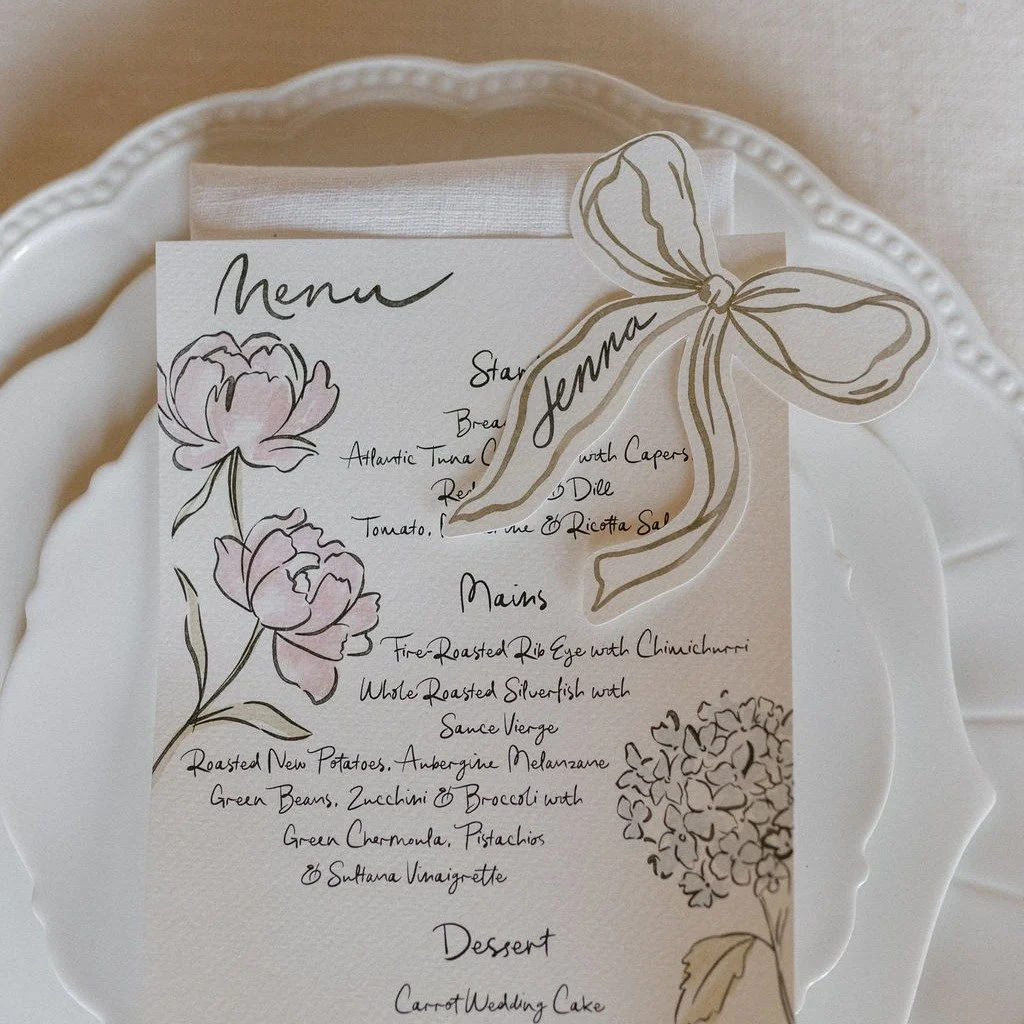 Menu
Jenna
Atlantic Tuna with Capers
& Dill
Tomato, & Ricotta
Mains
Fire-Roasted Rib Eye with Chimichurri
Whole Roasted Silverfish with
Sauce Vierge
Roasted New Potatoes, Aubergine Melanzane
Green Beans, Zucchini & Broccoli with
Green Chermoula, Pistachios
& Sultana Vinaigrette
Dessert
Carrot Wedding Cake